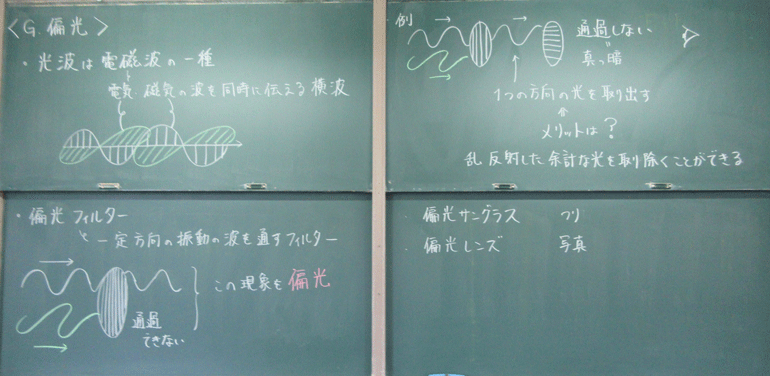 〈G. 偏光〉
・光波は電磁波の一種
電気 磁気の波を同時に伝える横波
・偏光フィルター
一定方向の振動の波を通すフィルター
この現象を偏光
通過
できない
・例
通過しない
真っ暗
1つの方向の光を取出す
メリットは?
乱反射した余計な光を取り除くことができる
・偏光サングラス つり
・偏光レンズ 写真